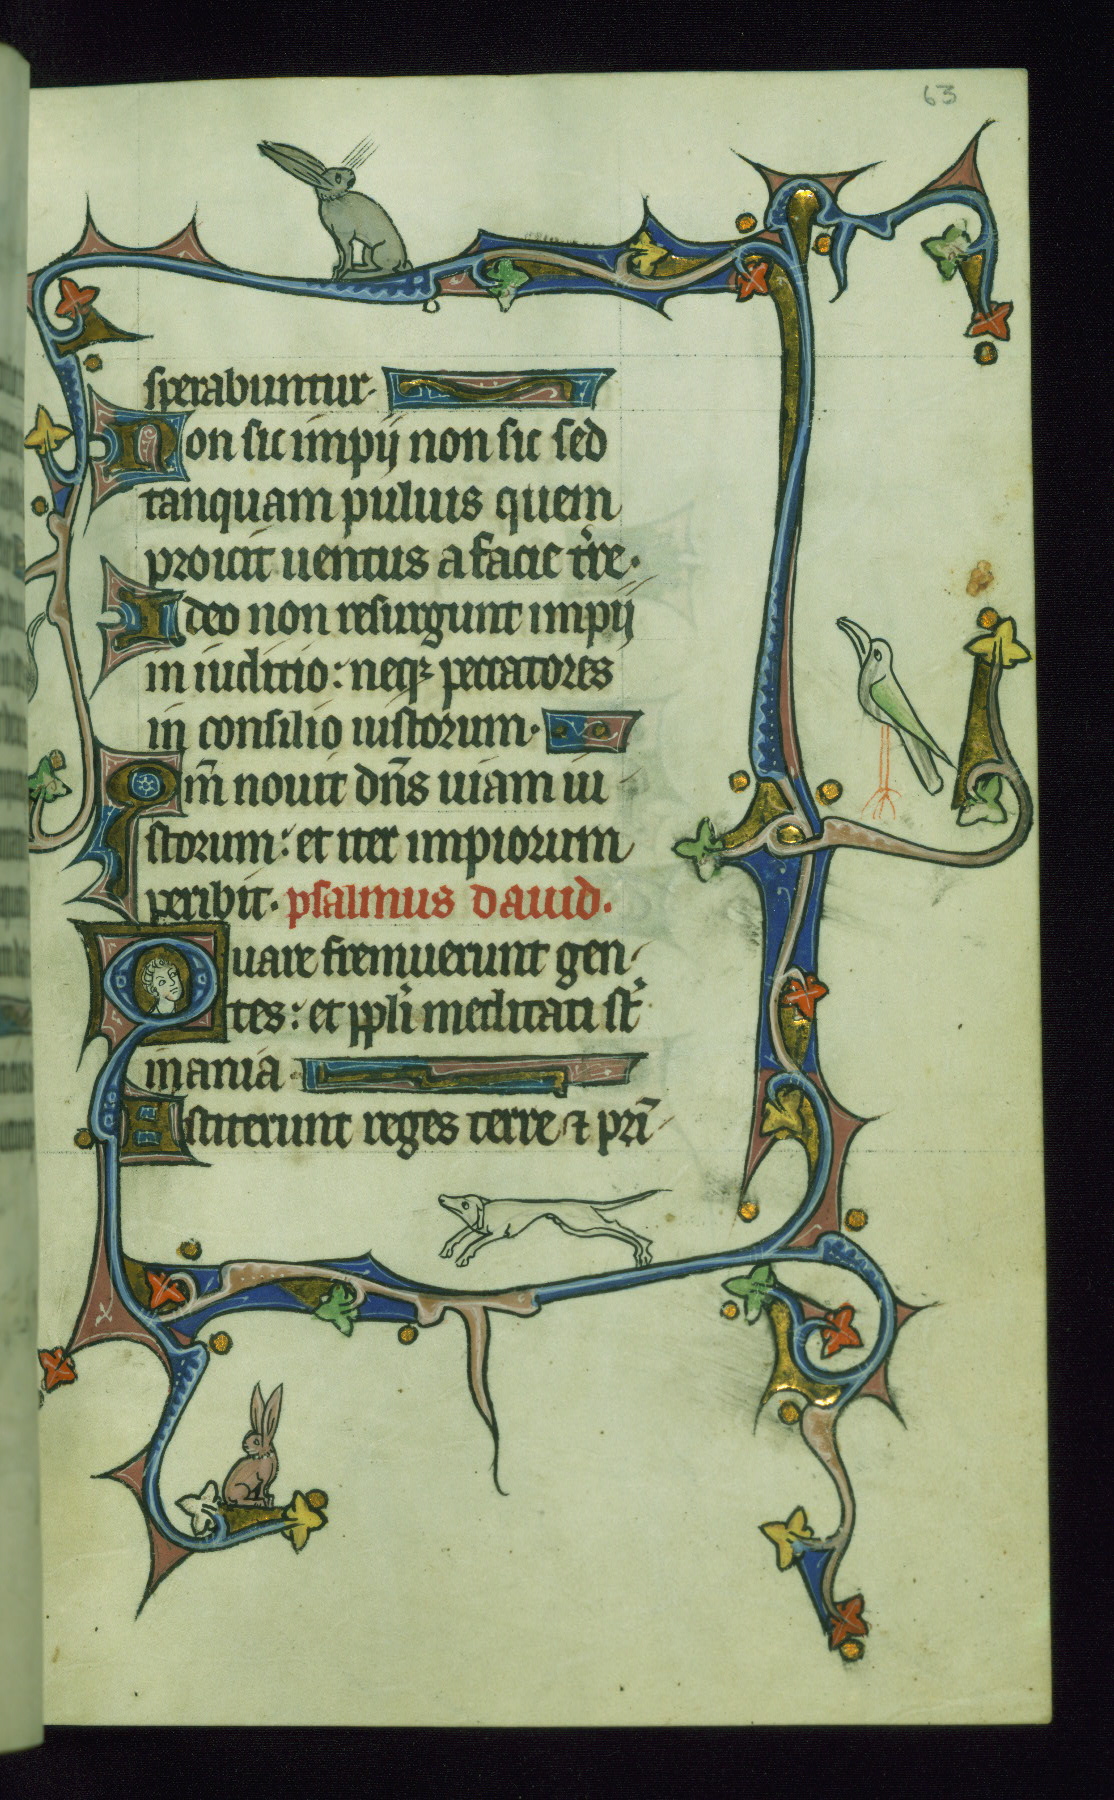 63
sperabuntur.
Non sic impij non sic sed
tanquam puluis quem
proicit uentus a facie tr̃re.
Ideo non resurgunt impij
in iuditio: neqʒ peccatores
in consilio iustorum.
Qm̃ nouit dñs uiam iu
storum: et iter impiorum
peribit. psalmus dauid.
Quare fremuerunt gen
tes: et ppl̃i meditati st̃
inania
Astiterunt reges terre ⁊ pri̅